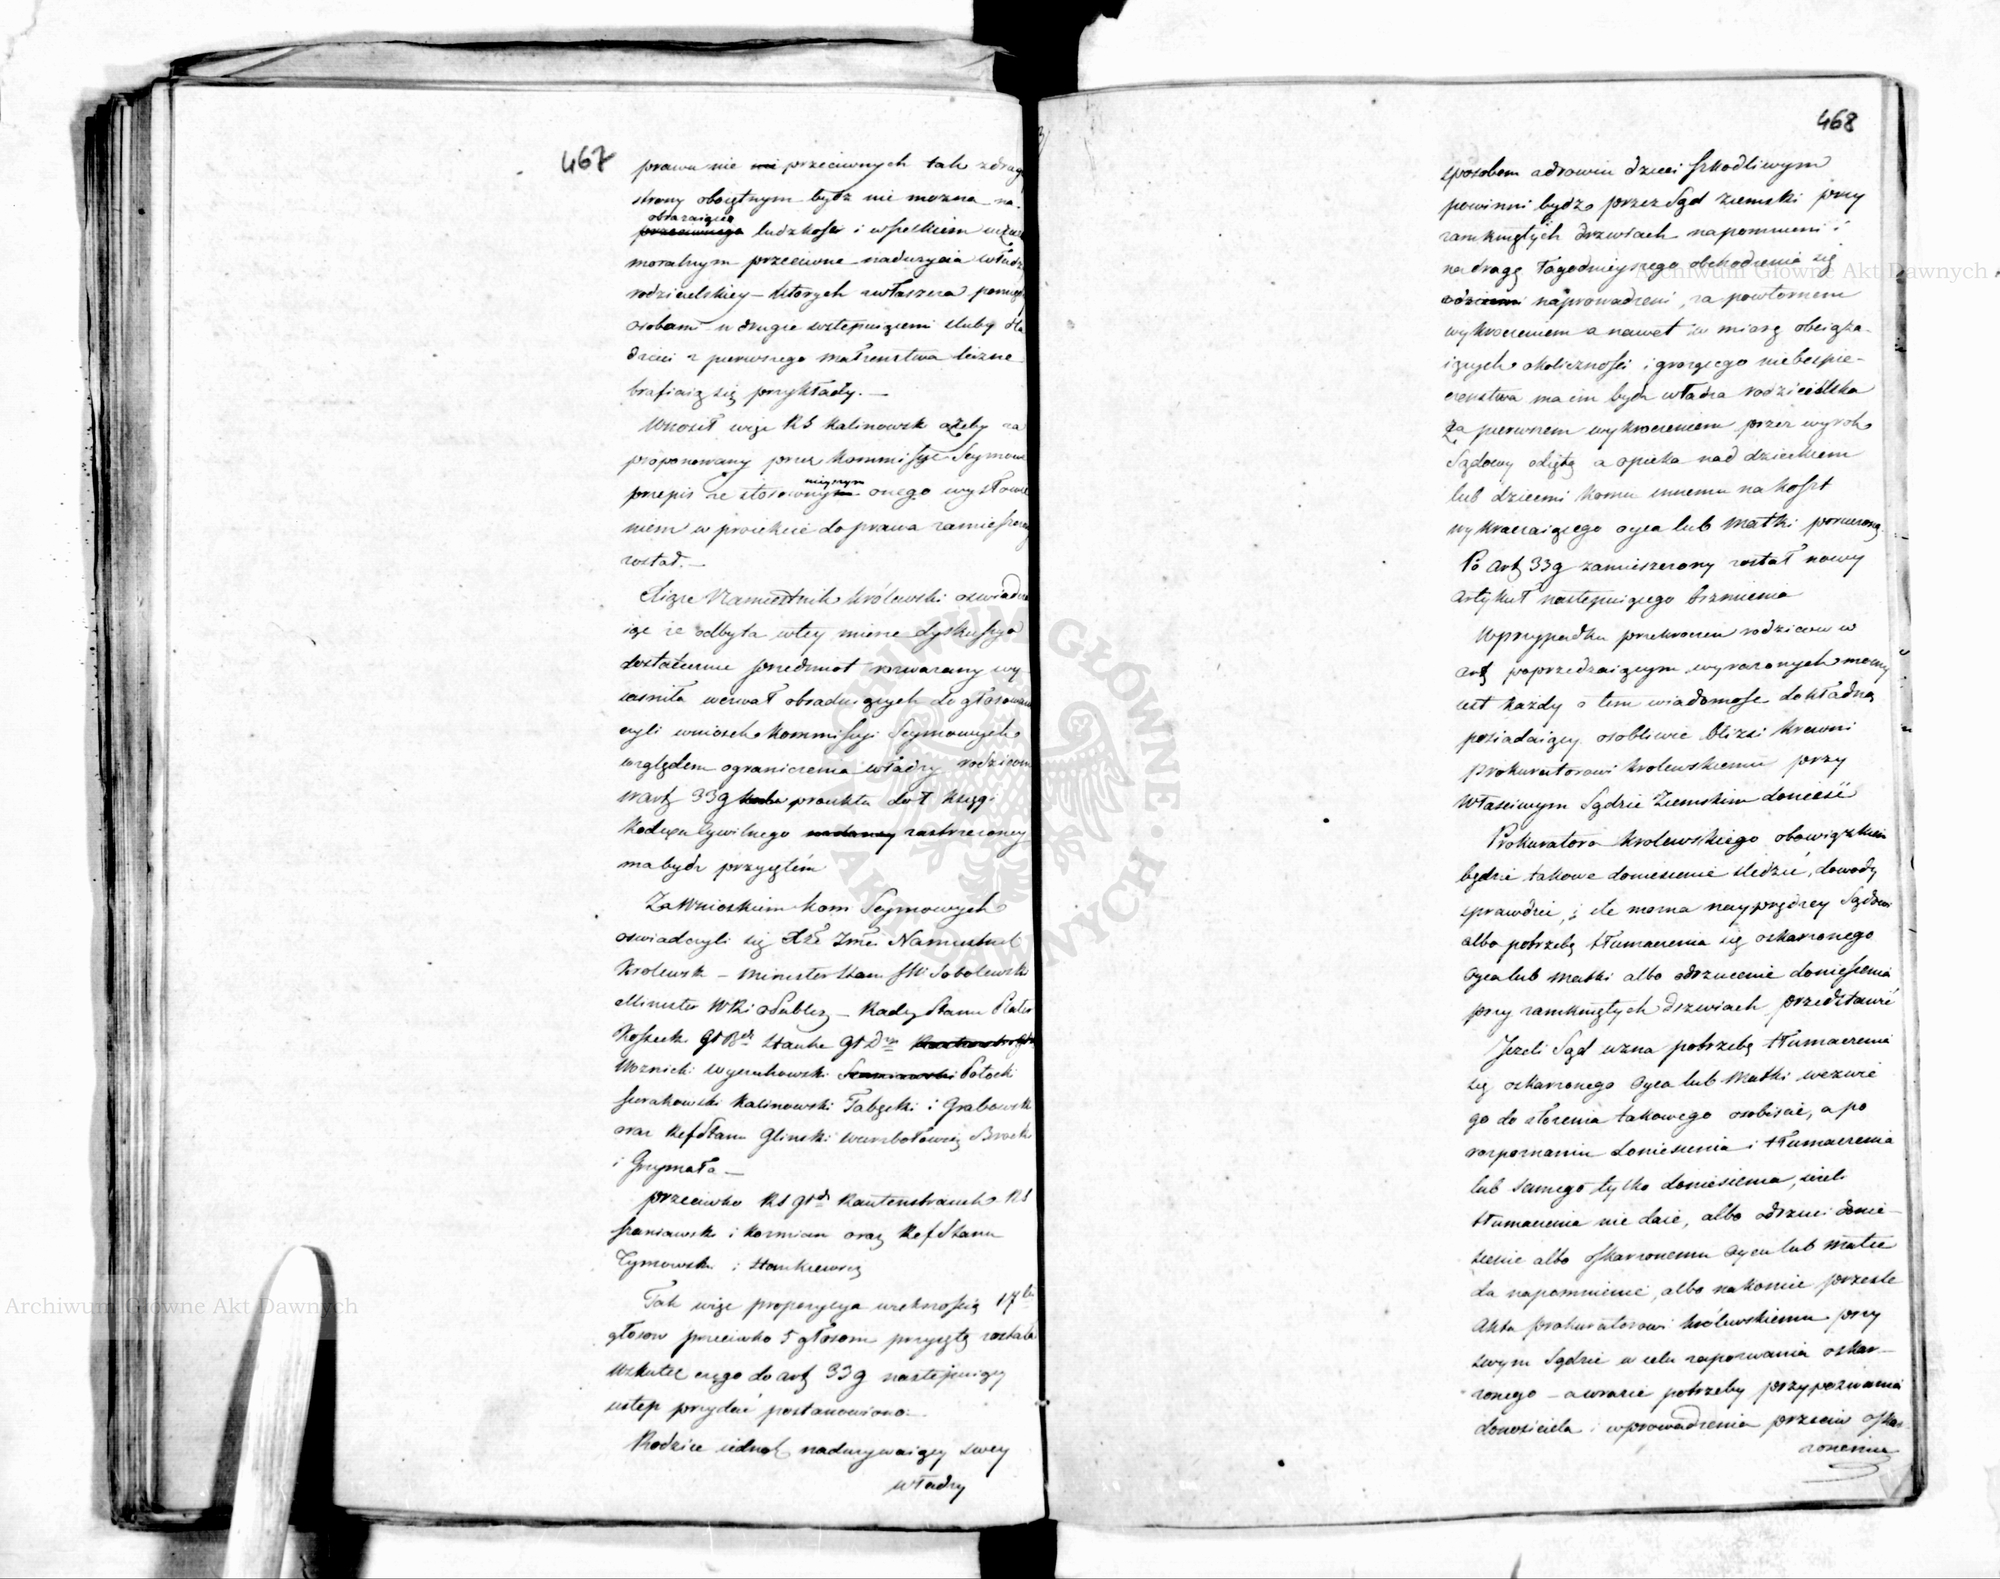 467
prawa nie ni przeciwnych tak z drug
strony oboiętnym bydź nie można na
obrażaiące
przeciwnego ludzkości i wszelkiem
moralnym przeciwne nadużycia władz
rodzicielskiey – których zwłaszcza pomię
osobami w drugie wstępuiącemi śluby dla
dzieci z pierwszego małżeństwa liczne
trafiaią się przykłady. —
Wnosił więc RS Kalinowsk ażeby za
proponowany przez Kommissye Seymowe
przepis ze stosownym onego wysłowie
niem w proiekcie do prawa zamieszczony
został. —
Xiąże Namiestnik Królewski oswiadcza
iąc że odbyta w tey mierze dyskussya
dostatecznie przedmiot rozważany wy
iasniła wezwał obraduiących do głosowania
czyli wniosek Kommissyi Seymowych
względem ograniczenia władzy rodziców
w art 339 proiektu do I Księgi
Kodexu Cywilnego nadaney zastrzeżoney
ma bydź przyiętém
Za wnioskiem kom Seymowych
oswiadczyli się Xże Jmć Namiestnik
Krolewsk – Minister Stanu JW Sobolewski
Minister – Radcy Stanu Plater
Kossecki Hauke
Woznicki Wyczechowski Potocki
Surakowski Kalinowski Tabęcki i Grabowsk
oraz Ref Stanu Glinski Brocki
i Grzymała —
przeciwko RS Rautenstrauch RS
Szaniawski i Kozmian oraz Ref Stanu
Tymowski i Hankiewicz
Tak więc propozycya większością 17tu
głosow przeciwko 5 głosom przyiętą została
wskutek czego do art 339 następuiący
ustęp przydać postanowiono.
Rodzice iednak nadużywaiący swey
władzy
468
sposobem zdrowiu dzieci szkodliwym
powinni bydź przez Sąd Ziemski przy
zamkniętych drzwiach napomnieni i
na drogę łagodnieyszego obchodzenia się
z dziećmi naprowadzeni, za powtornem
wykroczeniem a nawet w miarę obciąża-
iących okoliczności i grożącego niebespie-
czenstwa ma im bydź władza rodzicielska
za pierwszem wykroczeniem przez wyrok
Sądowy odiętą a opieka nad dzieckiem
lub dziećmi komu innemu na koszt
wykraczaiącego oyca lub Matki poruczoną.
Po art 339 zamieszczony został nowy
artykuł następuiącego brzmienia
W przypadku przekroczeń rodziców w
art poprzedzaiącym wyrażonych mocny
iest każdy o tem wiadomość dokładną
posiadaiący osobliwie blizsi krewni
Prokuratorowi królewskiemu przy
Własciwym Sądzie Ziemskim doniesć
Prokuratora krolewskiego obowiązkiem
będzie takowe doniesienie sledzić, dowody
sprawdzić, i ile można nayprędzey Sądowi
albo potrzebę tłumaczenia się oskarzonego
Oyca lub Matki albo odrzucenie doniesienia
przy zamkniętych drzwiach przedstawić
Jezeli Sąd uzna potrzebę tłumaczenia
się oskarzonego Oyca lub Matki wezwie
go do złożenia takowego osobiscie, a po
rozpoznaniu doniesienia i tłumaczenia
lub samego tylko doniesienia, iezeli
tłumaczenia nie daie, albo odrzuci donie-
sienie albo oskarzonemu Oycu lub Matce
da napomnienie, albo nakoniec przesle
Akta prokuratorowi królewskiemu przy
swym Sądzie w celu zapozwania oskar-
żonego – a w razie potrzeby przypozwania
donosiciela i wprowadzenia przeciw oskar-
zonemu
Archiwum Główne Akt Dawnych
Archiwum Główne Akt Dawnych
ARCHIWUM GŁÓWNE AKT DAWNYCH